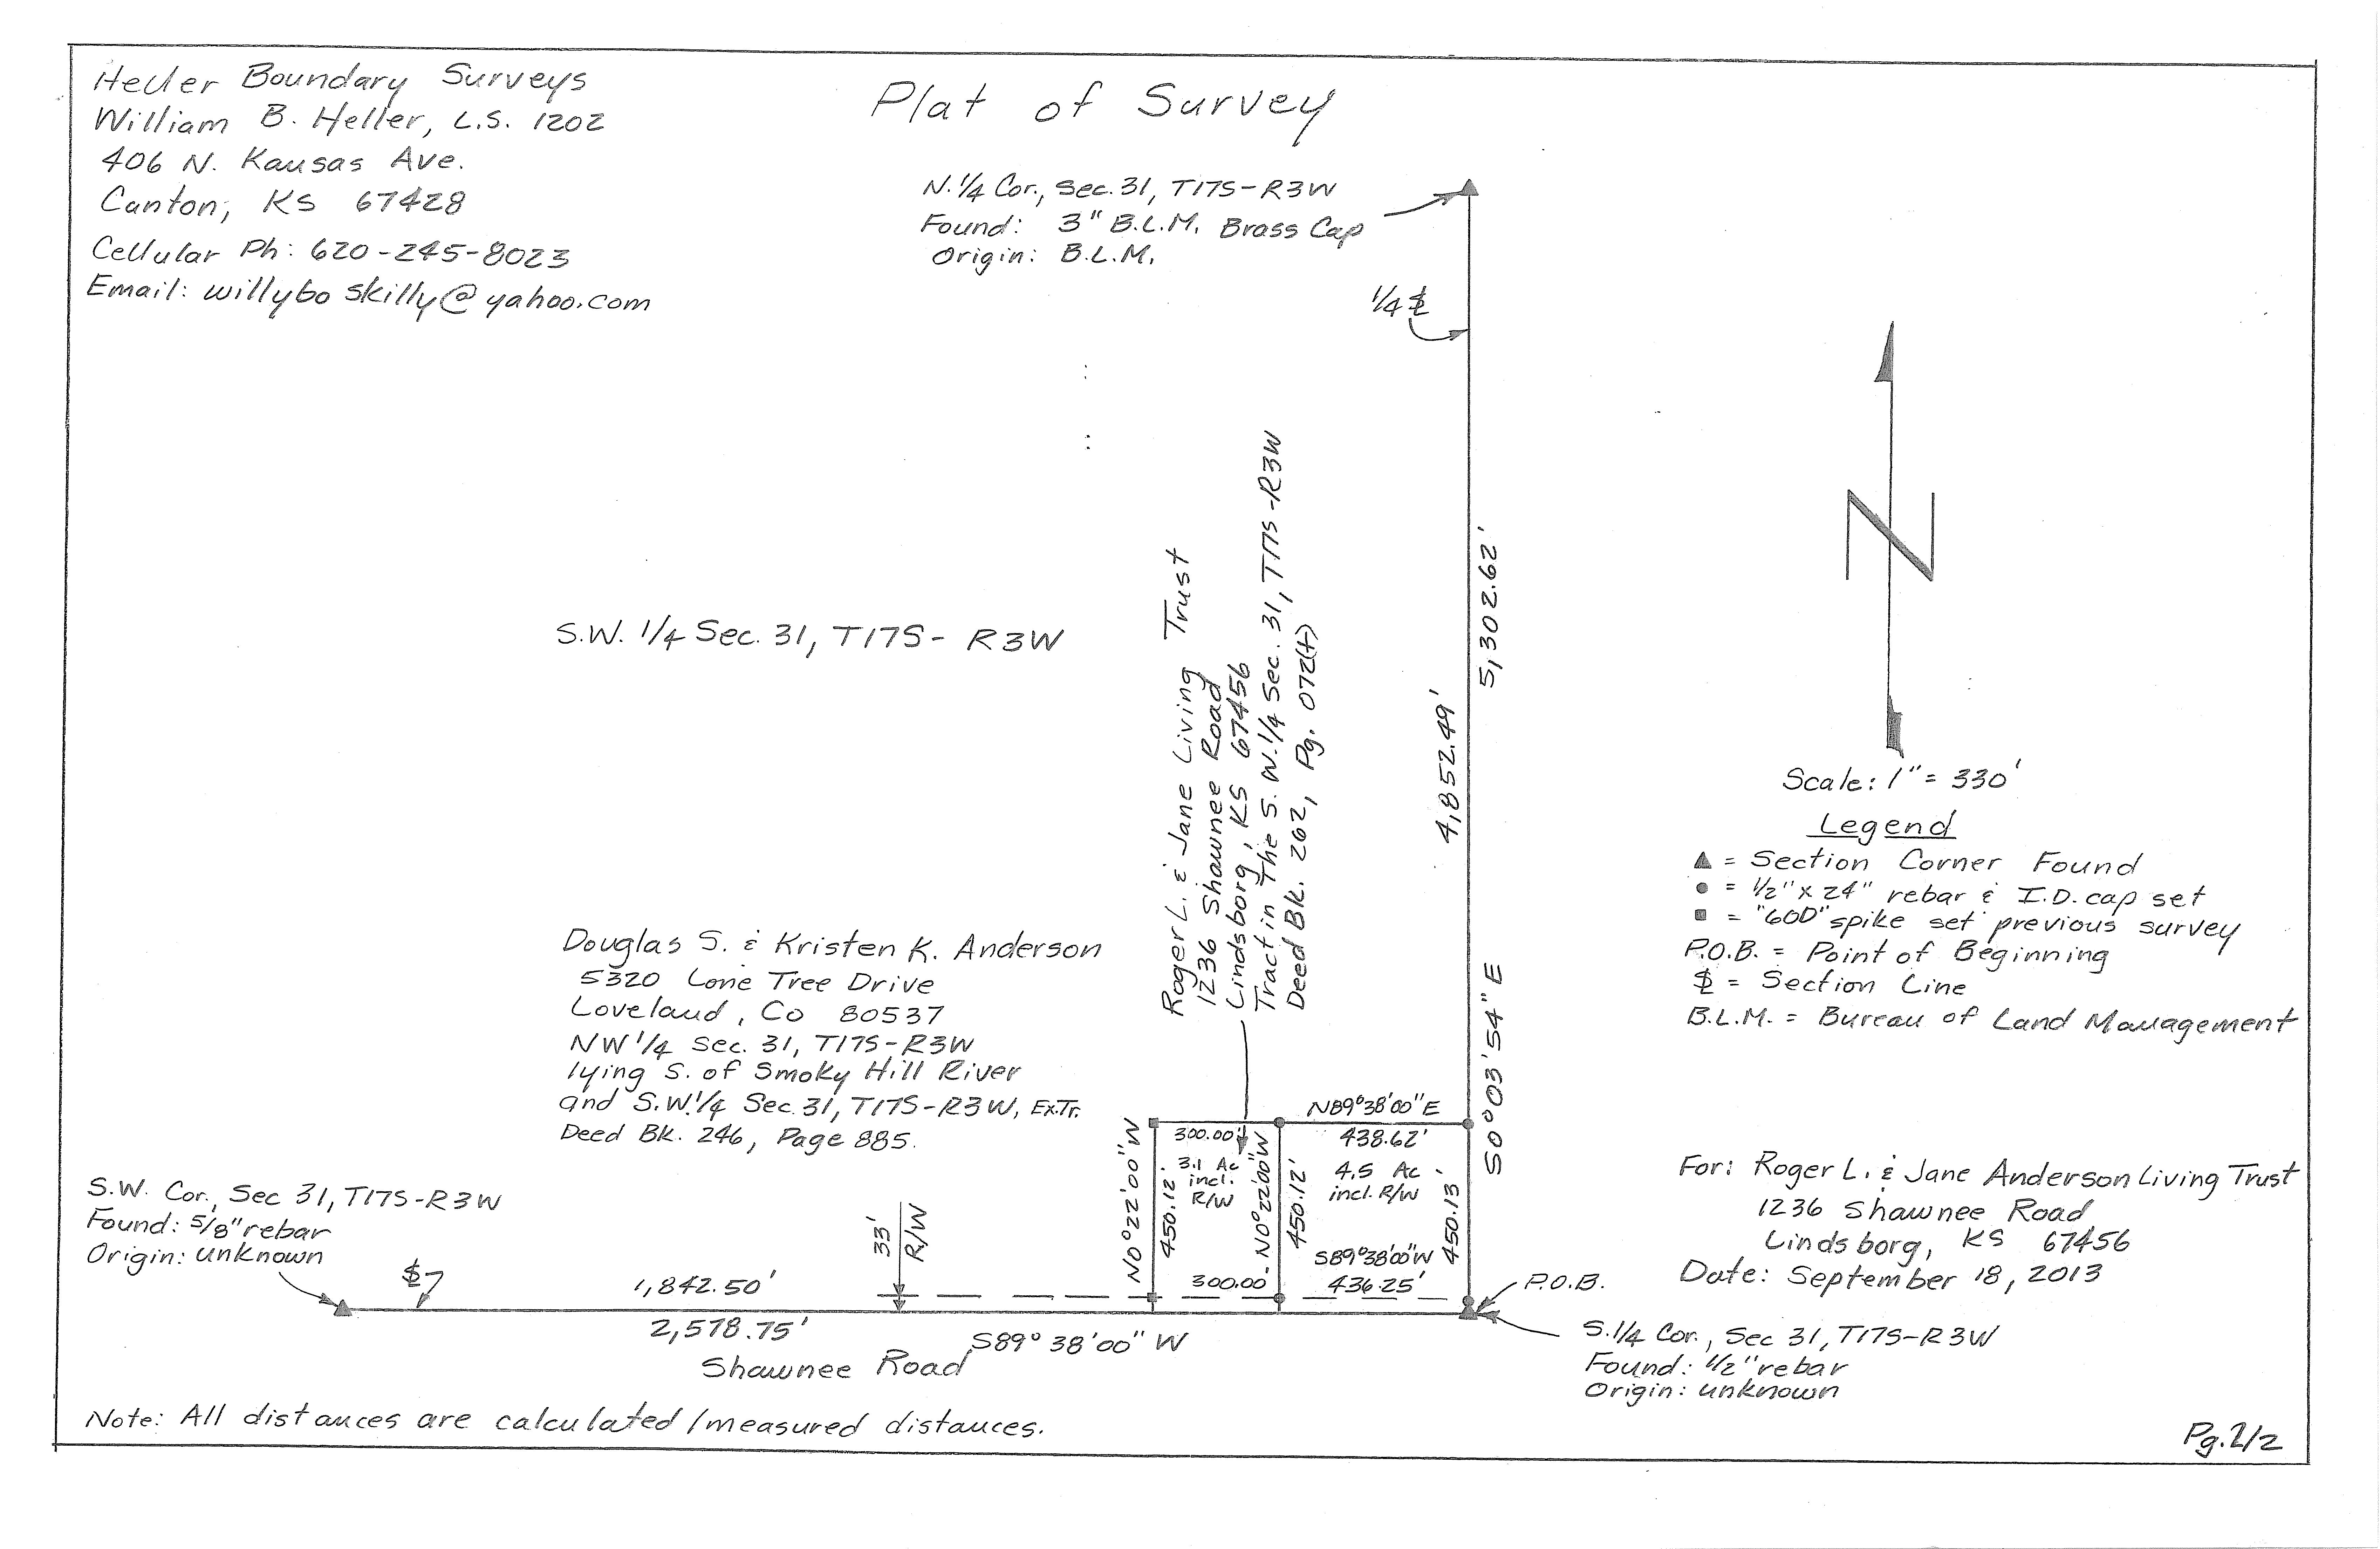 Heller Boundary Surveys
William B. Heller, L.S. 1202
406 N. Kansas Ave.
Canton, KS 67428
Cellular Ph: 620-245-8023
Email: willybo skilly@yahoo.com
Plat of Survey
N.1/4 Cor., Sec. 31, T17S-R3W
Found: 3" B.L.M. Brass Cap
Origin: B.L.M.
1/4 SL
5,302.62'
4,852.49'
S0°03'54"E
S.W. 1/4 Sec. 31, T17S- R3W
Roger L. & Jane Living Trust
1236 Shawnee Road
Lindsborg, KS 67456
Tract in The S.W.1/4 Sec. 31, T17S-R3W
Deed Bk. 262, Pg. 072(t)
Scale: 1" = 330'
Legend
▲ = Section Corner Found
● = 1/2" x 24" rebar & I.D. cap set
■ = "60D" spike set previous survey
P.O.B. = Point of Beginning
SL = Section Line
B.L.M. = Bureau of Land Management
Douglas S. & Kristen K. Anderson
5320 Lone Tree Drive
Loveland, Co 80537
NW 1/4 Sec. 31, T17S-R3W
lying S. of Smoky Hill River
and S.W.1/4 Sec. 31, T17S-R3W, Ex.Tr.
Deed Bk. 246, Page 885.
N89°38'00"E
300.00'
438.62'
3.1 Ac
incl.
R/W
4.5 Ac
incl. R/W
N0°22'00"W
450.12'
N0°22'00"W
450.12'
450.13'
S89°38'00"W
300.00
436.25'
For: Roger L. & Jane Anderson Living Trust
1236 Shawnee Road
Lindsborg, KS 67456
Date: September 18, 2013
S.W. Cor., Sec 31, T17S-R3W
Found: 5/8" rebar
Origin: unknown
SL
33'
R/W
1,842.50'
2,578.75'
S89°38'00" W
Shawnee Road
P.O.B.
S.1/4 Cor., Sec 31, T17S-R3W
Found: 1/2" rebar
Origin: unknown
Note: All distances are calculated/measured distances.
Pg.2/2